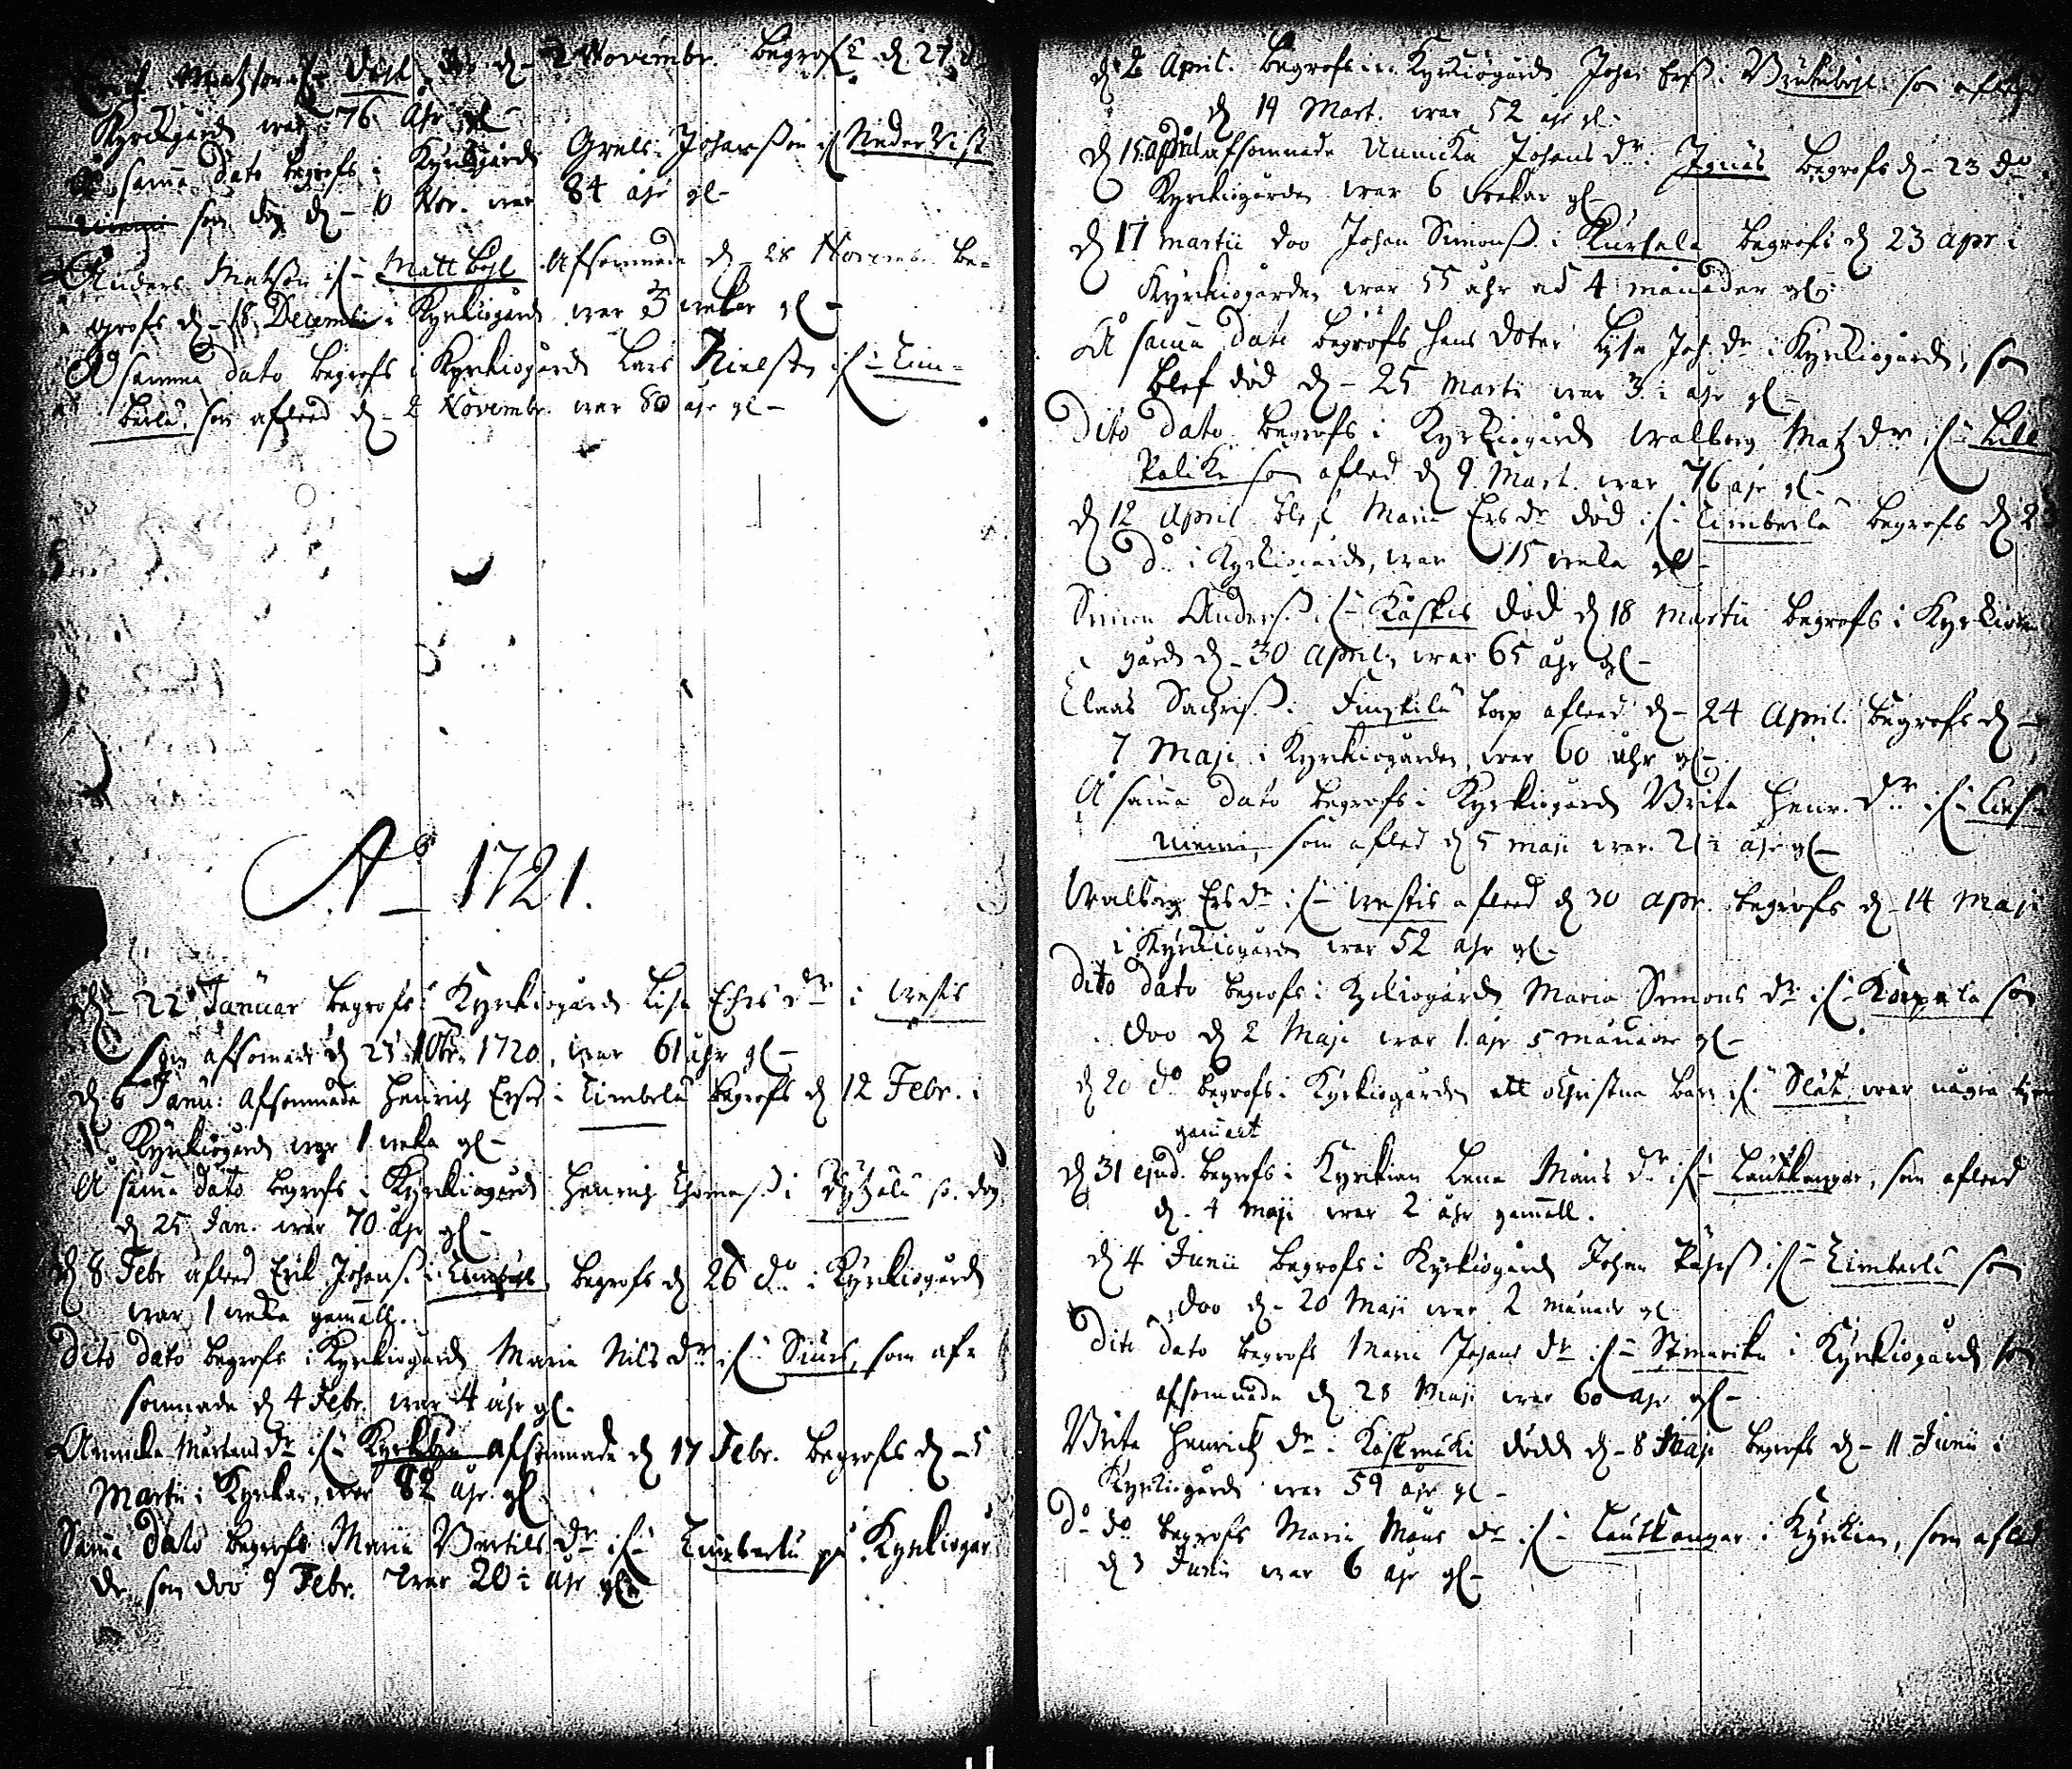 Matzson ifr. Böhl d. 2 Novembr. begrofs d. 27 d
Kyrckgård war 76 Åhr gl-
samma Dato begrofs i Kyrckgård Grels Johansson if Neder Vist
niemi som dog d- 10 Nov. war 84 åhr gl-
Anders Matson if- Mattböhl Afsomnade d- 28 Novemb. be-
grofs d- 18 Decemb i Kyrkiogård war 3 wekor gl-
A samma dato begrofs i Kyrkiogård Lars Nielsson if- Tim-
berla som afleed d- 2 Novembr. war 80 åhr gl-
Ao 1721.
d- 22 Januar begrofs i Kyrkiogård Lisa Ehrsdr i Westis
som afsomnade d 25 10br. 1720, war 61 åhr gl-
d 6 Janu: Afsomnade Henrich Ersson i Timbela begrofs d 12 Febr. i
Kyrkiogård war 1 weka gl-
A samma dato begrofs i Kyrkiogård Henrich Thomasß i so. dog
d 25 Jan. war 70 åhr gl-
d 8 Febr afleed Erik Johansß i begrofs d 26 do i Kyrkiogård
war 1 weka gamall.
Dito dato begrofs i Kyrkiogård Maria Nils dr if- Siurs, som af-
somnade d 4 Febr. war 4 åhr gl-
Annicka Mårtens dr if- Kyrckbyn Afsomnade d 17 Febr. begrofs d- 5
Martii i Kyrkan, war 82 åhr gl
Samma Dato begrofs Maria Bertils dr if- Timberla på Kyrkiogår
de som doo 9 Febr. war 20½ åhr gl-
d 2 April. begrofs i Kyrkiogård Johan Ersß i Brinkeböhl som afleed
d 19 Mart. war 52 åhr gl-
d 15 April afsomnade Annicka Johans dr i Jgnäs begrofs d- 23 do
Kyrkiogården war 6 wekor gl-
d 17 martii doo Johan Simonsß i Kursela begrofs d 23 apr i
Kyrkiogården war 55 åhr ad 4 månader gl:
A samma dato begrofs hans doter Lysa Joh. dr i Kyrkiogård, som
blef död d- 25 Marti war 3½ åhr gl-
Dito dato begrofs i Kyrkiogård Walborg Matz dr if- Lill
som afled d 9. Mart. war 76 åhr gl-
d 12 April blef Maria Ersdr död if- Timberla begrofs d 23
do i Kyrkiogård, war 15 weka gl-
Simon Andersß if- Kaskis död d 18 Martii begrofs i Kyrkio
gård d- 30 April, war 65 åhr gl-
Claas Sachrisß i Finskila torp afleed d- 24 April. begrofs d-
7 Maji i Kyrkiogården, war 60 åhr gl-
A samma dato begrofs i Kyrkiogård Brita Henr. dr if-
niemi, som afled d 5 maji war. 2½ åhr gl-
Walborg Ersdr if- Westis afleed d 30 apr. begrofs d- 14 Maji
i Kyrkiogården war 52 åhr gl-
Dito dato begrofs i Kyrkiogård Maria Simons dr if- Korpela som
doo d 2 Maji war 1 åhr 5 månader gl-
d 20 do begrofs i Kyrkiogården ett Christna barn if- Slät war några
gamalt
d 31 ejusd. begrofs i Kyrkian Lena Måns dr if- Lautkangar, som afleed
d. 4 maji war 2 åhr gamall.
d 4 Junii begrofs i Kyrkiogård Johan if- Timberla som
doo d- 20 Maji war 2 månad gl
Dito dato begrofs Maria Johans dr if- Stenarika i Kyrkiogård som
afsomnade d 28 Maji war 60 åhr gl-
Brita Henrich dr i Kaskmäki dödde d- 8 Maji begrofs d- 11 Junii i
Kyrkiogård war 59 åhr gl-
do do begrofs Maria Måns dr if- Lautkangar i Kyrkian, som afled
d 3 Junii war 6 åhr gl-